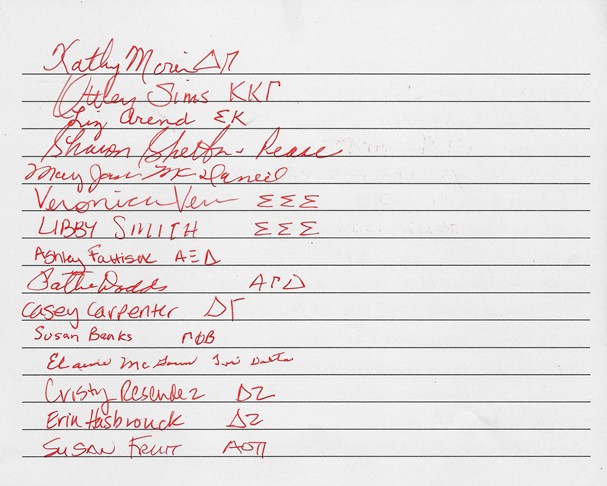 Kathy Morin ΔΓ
Sims KKΓ
Liz Arend ΣK
Sharon Shelton-Pease
Mary Jane McDaniel
Veronica ΣΣΣ
LIBBY SMITH ΣΣΣ
Ashley AΞΔ
Dodds AΓΔ
Casey Carpenter ΔΓ
Susan Banks ΓΦB
Elaine Mc Delta
Cristy Resendez ΔZ
Erin Hasbrouck ΔZ
SUSAN FRUIT AOΠ